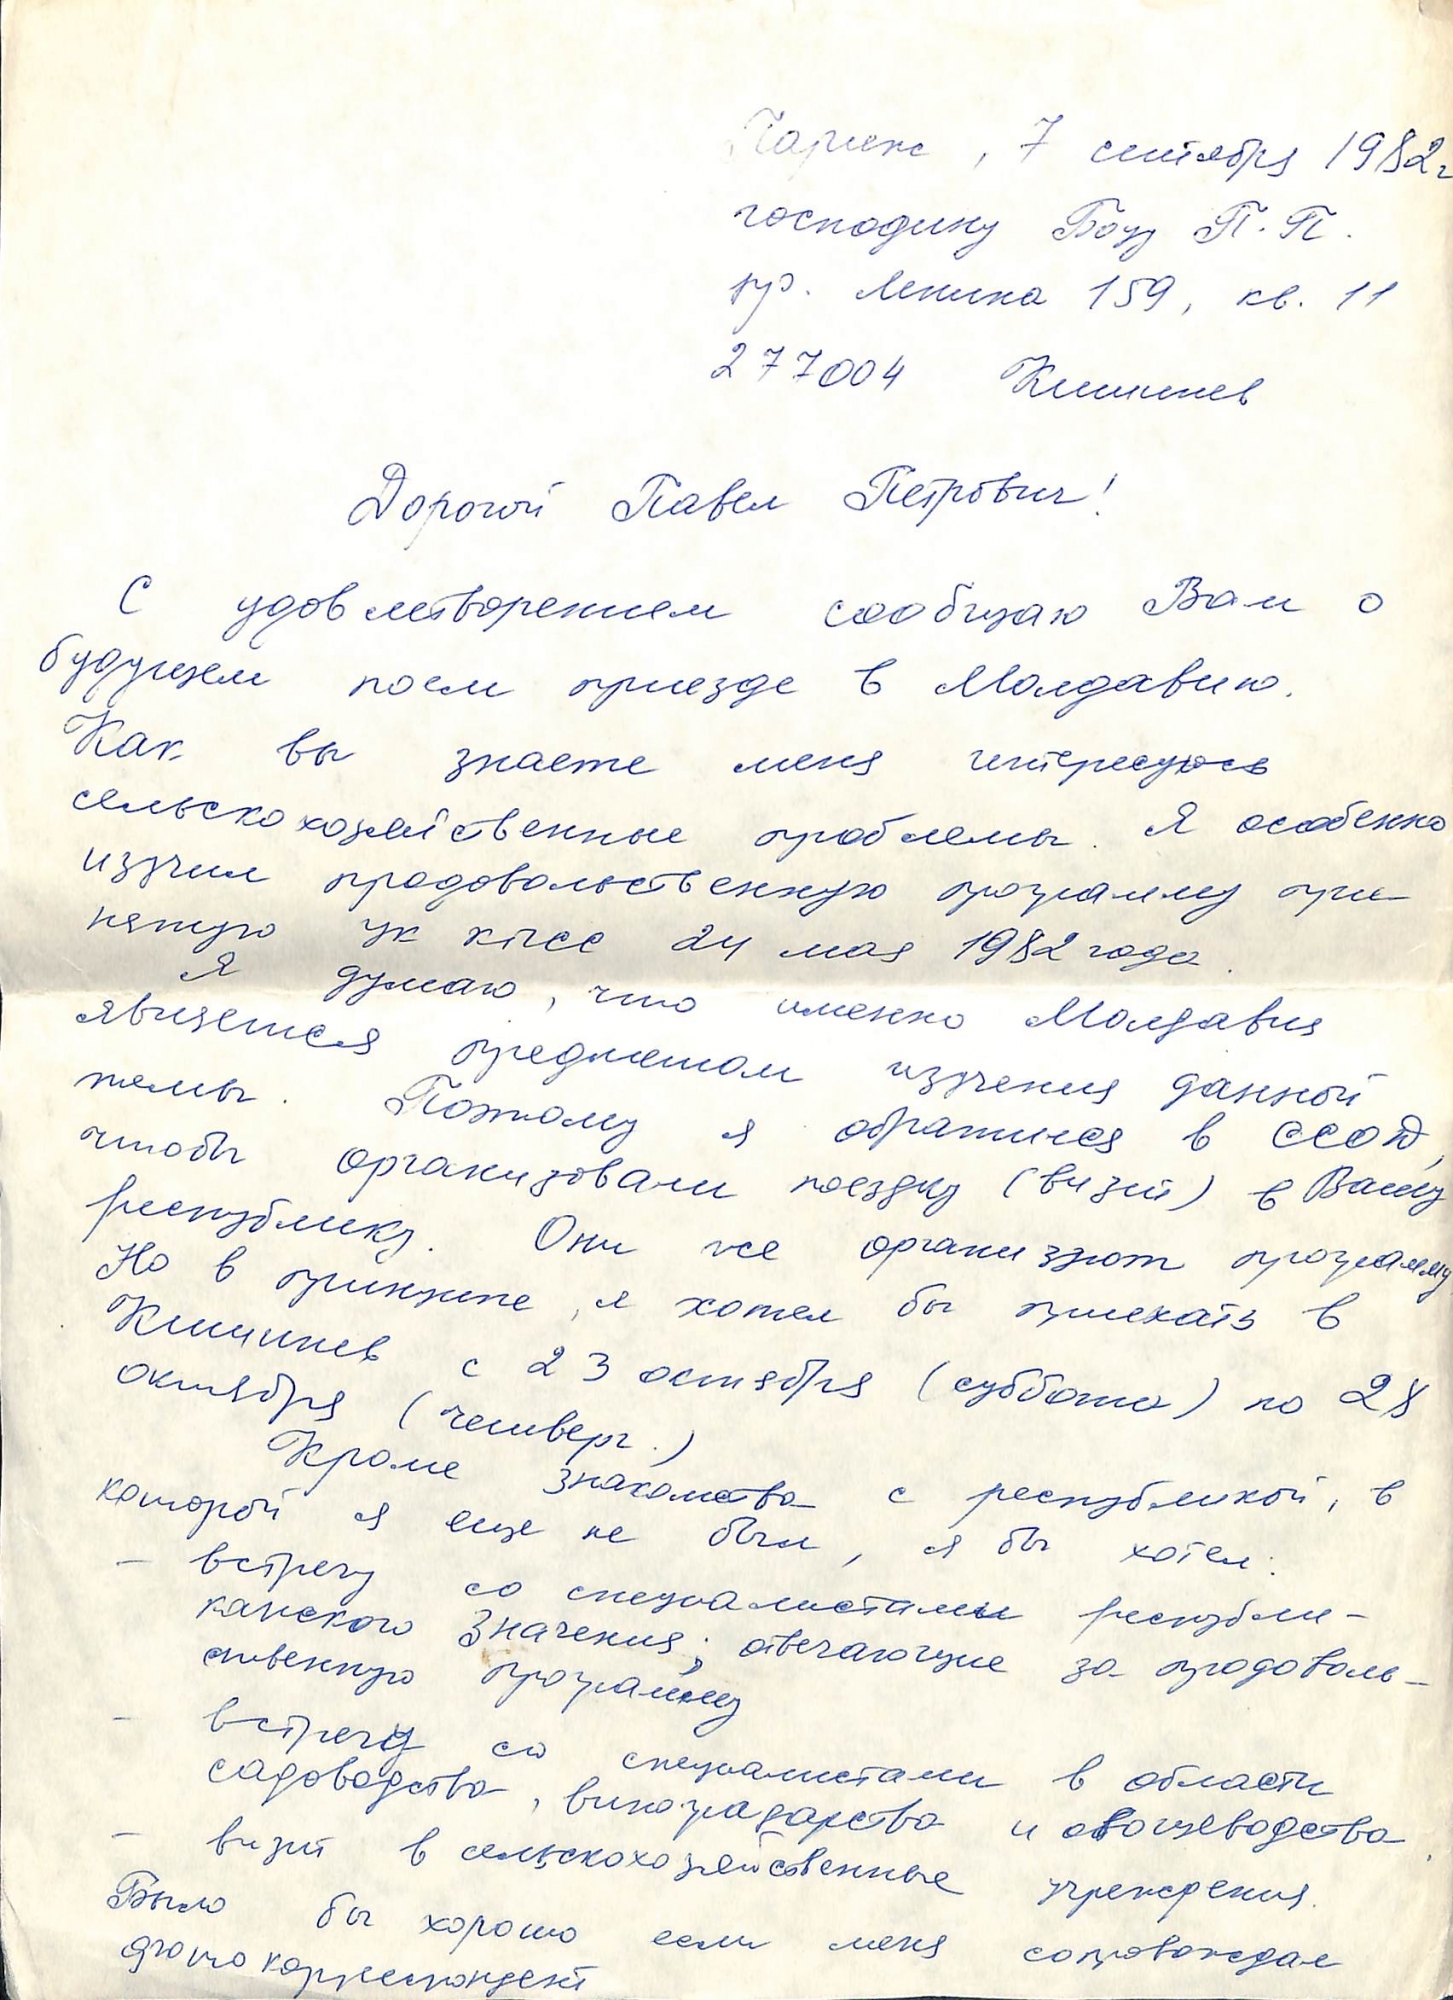 Париж, 7 сентября 1982г
господину Боцу П.П.
пр. Ленина 159, кв. 11
277004 Кишинев
Дорогой Павел Петрович!
С удовлетворением сообщаю Вам о
будущем моем приезде в Молдавию.
Как вы знаете меня интересуюсь
сельскохозяйственные проблемы. Я особенно
изучил продовольственную программу при-
нятую ЦК КПСС 24 мая 1982 года.
Я думаю, что именно Молдавия
является предметом изучения данной
темы. Поэтому я обратился в ССОД,
чтобы организовали поездку (визит) в Вашу
республику. Они же организуют программу
Но в принципе, я хотел бы приехать в
Кишинев с 23 октября (суббота) по 28
октября (четверг.)
Кроме знакомства с республикой, в
которой я еще не был, я бы хотел:
- встречу со специалистами республи-
канского значения; отвечающие за продоволь-
ственную программу
- встречу со специалистами в области
садоводства, виноградарства и овощеводства.
- визит в сельскохозяйственные учреждения.
Было бы хорошо если меня сопровождал
фотокорреспондент